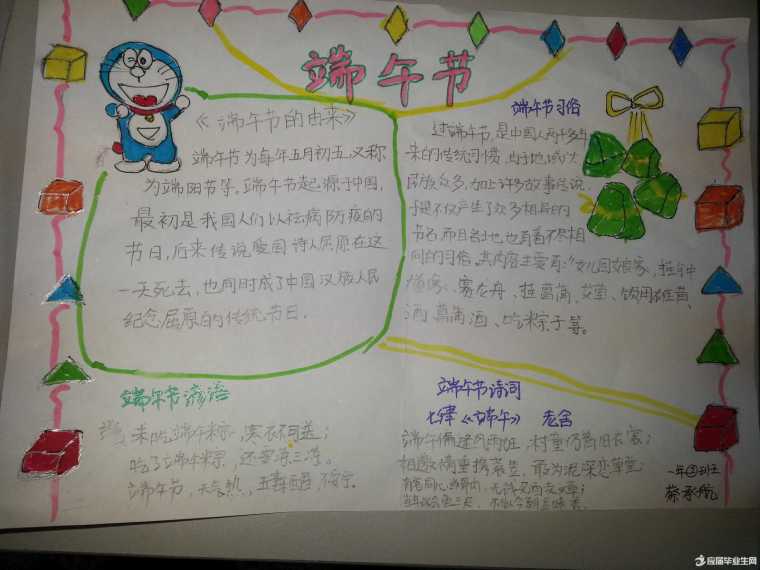 端午节
《端午节的由来》
端午节为每年五月初五,又称
为端阳节等。端午节起源于中国,
最初是我国人们以祛病防疫的
节日,后来传说爱国诗人屈原在这
一天死去,也同时成了中国汉族人民
纪念屈原的传统节日.
端午节习俗
过端午节,是中国人两千多年
来的传统习惯,由于地域广大
民族众多,加上许多故事传说,
于是不仅产生了众多相异的
节名,而且各地也有着不尽相
同的习俗。其内容主要有:女儿回娘家,挂钟
馗像、赛龙舟、挂菖蒲、艾草、饮用雄黄
酒、菖蒲酒、吃粽子等。
端午节谚语
未吃端午粽,寒衣不可送;
吃了端午粽,还要冻三冻。
端午节,天气热,五毒醒,不安宁.
端午节诗词
七律《端午》 老舍
端午偏逢风雨狂,村童仍着旧衣裳;
相邀情重携蓑笠,敢为泥深恋草堂;
有客同心当骨肉,无钱又
一年②班
蔡承航
应届毕业生网